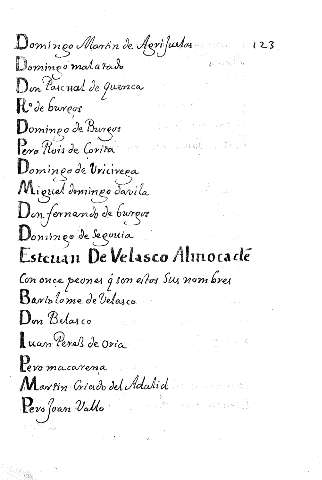 Domingo Martin de Agrijuelos 123
Domingo matarado
Don Pascual de quenca
Ro de burgos
Domingo de Burgos
Pero Rois de Corita
Domingo de Vricivega
Miguel domingo davila
Don fernando de burgos
Domingo de segouia
Esteuan De Velasco Almocadē
Con once peones q̃ son estos sus nombres
Bartolome de Velasco
Don Belasco
Iuan Perez de oria
Pero macarena
Martin Criado del Adalid
Pero Joan Vallo